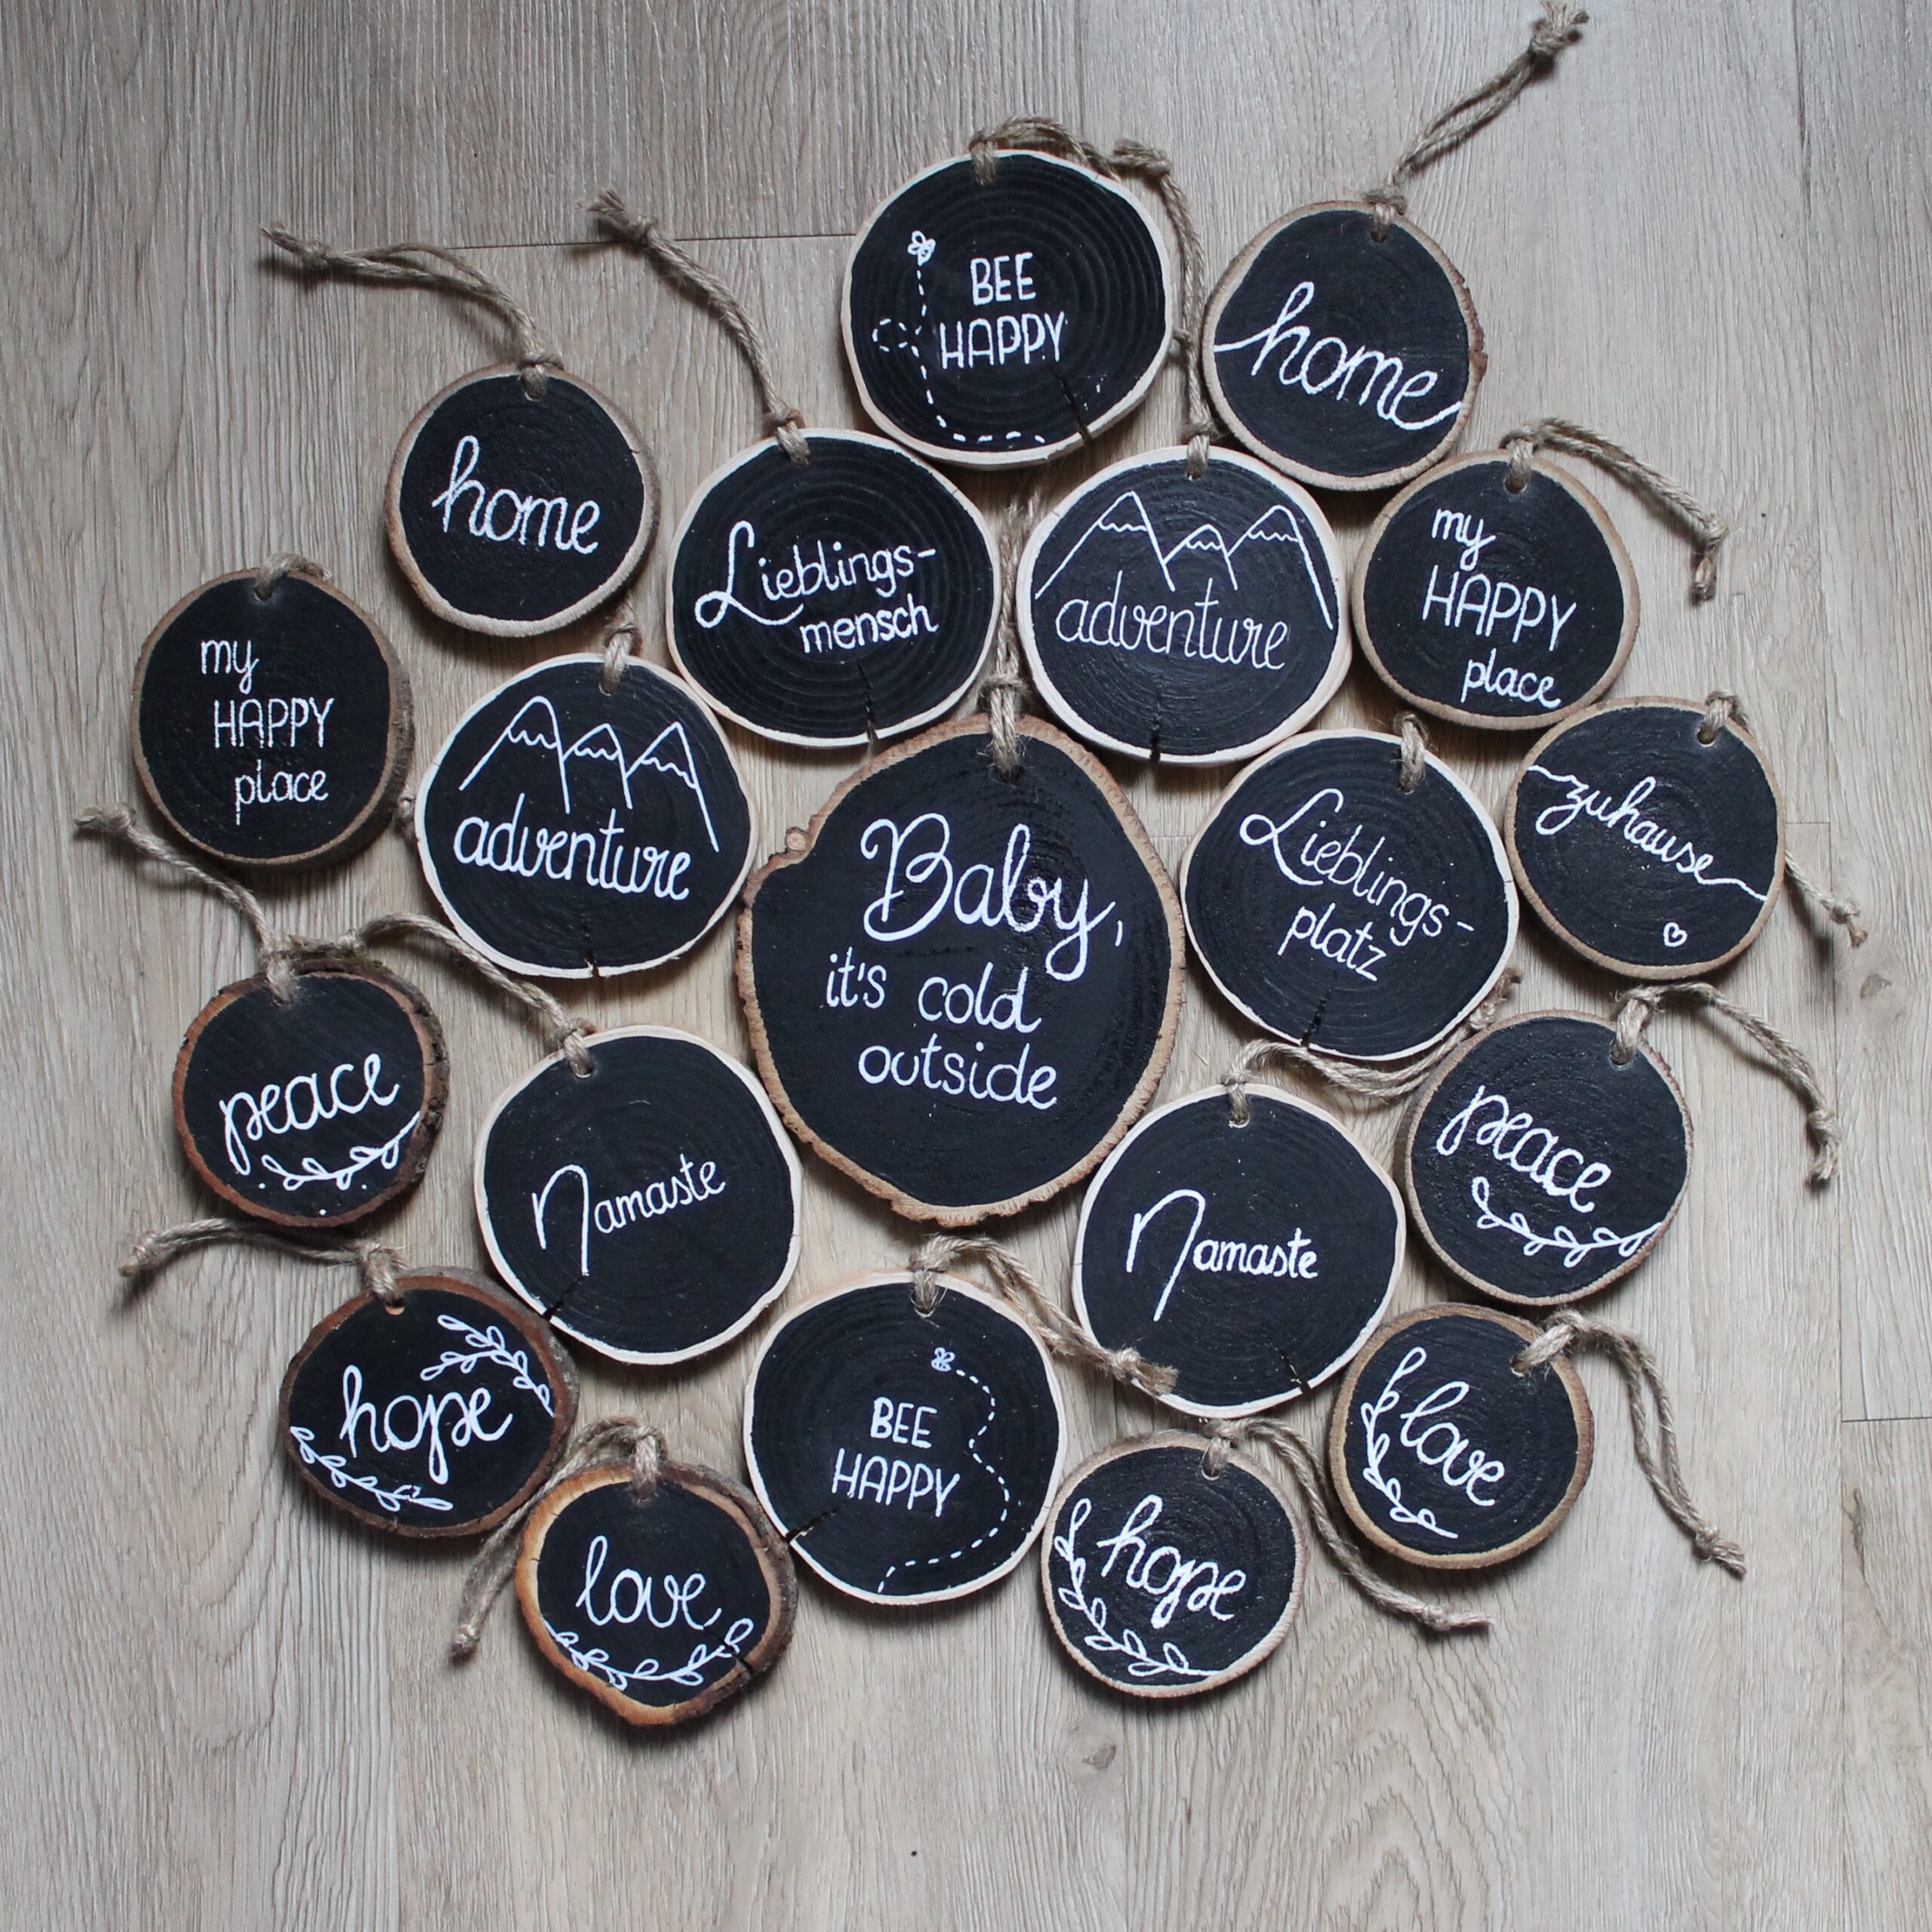 BEE
HAPPY
home
home
Lieblings-
mensch
adventure
my
HAPPY
place
my
HAPPY
place
adventure
Baby,
it's cold
outside
Lieblings-
platz
zuhause
peace
Namaste
Namaste
peace
hope
BEE
HAPPY
love
love
hope